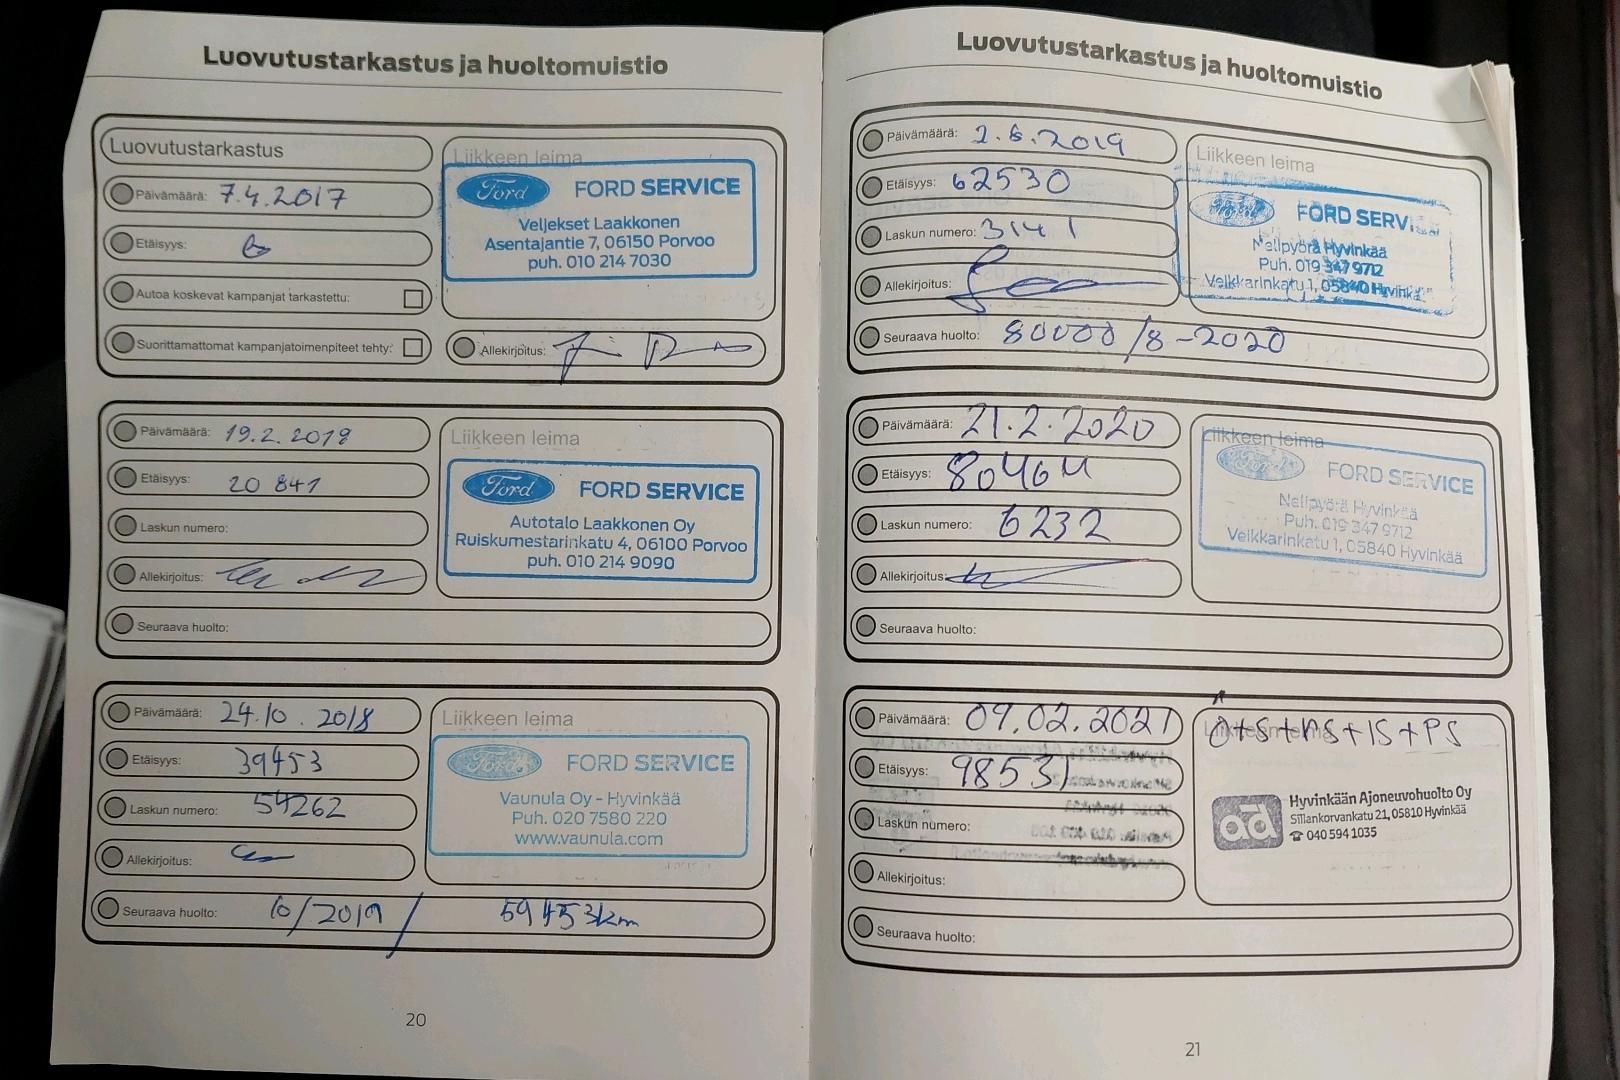 Luovutustarkastus ja huoltomuistio
Luovutustarkastus
Päivämäärä: 7.4.2017
Etäisyys: 6
Autoa koskevat kampanjat tarkastettu:
Suorittamattomat kampanjatoimenpiteet tehty:
Liikkeen leima
Ford FORD SERVICE
Veljekset Laakkonen
Asentajantie 7, 06150 Porvoo
puh. 010 214 7030
Allekirjoitus:
Päivämäärä: 19.2.2018
Etäisyys: 20 841
Laskun numero:
Allekirjoitus:
Liikkeen leima
Ford FORD SERVICE
Autotalo Laakkonen Oy
Ruiskumestarinkatu 4, 06100 Porvoo
puh. 010 214 9090
Seuraava huolto:
Päivämäärä: 24.10.2018
Etäisyys: 39453
Laskun numero: 54262
Allekirjoitus:
Liikkeen leima
Ford FORD SERVICE
Vaunula Oy - Hyvinkää
Puh. 020 7580 220
www.vaunula.com
Seuraava huolto: 10/2019 / 59453km
20
Luovutustarkastus ja huoltomuistio
Päivämäärä: 2.8.2019
Etäisyys: 62530
Laskun numero: 3141
Allekirjoitus:
Liikkeen leima
Ford FORD SERVICE
Nelipyörä Hyvinkää
Puh. 019 347 9712
Veikkarinkatu 1, 05840 Hyvinkää
Seuraava huolto: 80000/8-2020
Päivämäärä: 21.2.2020
Etäisyys: 80464
Laskun numero: 6232
Allekirjoitus:
Liikkeen leima
Ford FORD SERVICE
Nelipyörä Hyvinkää
Puh. 019 347 9712
Veikkarinkatu 1, 05840 Hyvinkää
Seuraava huolto:
Päivämäärä: 09.02.2021
Etäisyys: 98531
Laskun numero:
Allekirjoitus:
Liikkeen leima
Ö+S+RS+IS+PS
ad Hyvinkään Ajoneuvohuolto Oy
Sillankorvankatu 21, 05810 Hyvinkää
☎ 040 594 1035
Seuraava huolto:
21